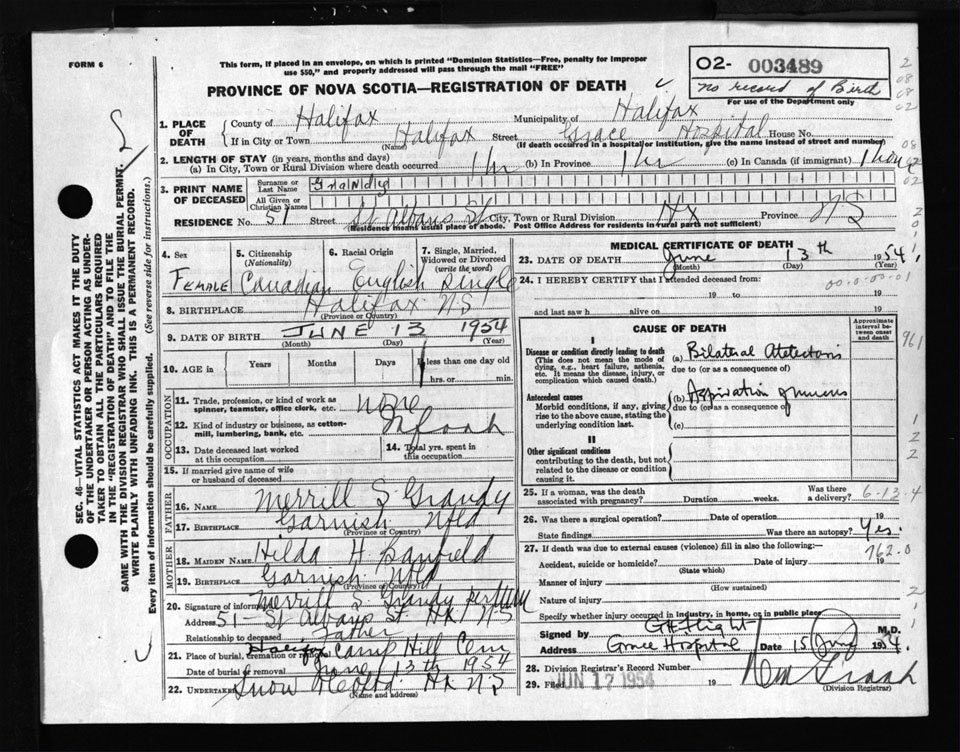 FORM 6
This form, if placed in an envelope, on which is printed "Dominion Statistics—Free, penalty for improper
use $50," and properly addressed will pass through the mail "FREE"
O2- 003489
no record of Birth
For use of the Department only
PROVINCE OF NOVA SCOTIA—REGISTRATION OF DEATH
SEC. 46—VITAL STATISTICS ACT MAKES IT THE DUTY
OF THE UNDERTAKER OR PERSON ACTING AS UNDER-
TAKER TO OBTAIN ALL THE PARTICULARS REQUIRED
IN THE "REGISTRATION OF DEATH" AND TO FILE THE
SAME WITH THE DIVISION REGISTRAR WHO SHALL ISSUE THE BURIAL PERMIT.
WRITE PLAINLY WITH UNFADING INK. THIS IS A PERMANENT RECORD.
Every item of information should be carefully supplied. (See reverse side for instructions.)
1. PLACE OF DEATH County of Halifax Municipality of Halifax
If in City or Town Halifax Street Grace Hospital House No.
(Name) (If death occurred in a hospital or institution, give the name instead of street and number)
2. LENGTH OF STAY (in years, months and days)
(a) In City, Town or Rural Division where death occurred 1 hr (b) In Province 1 hr (c) In Canada (if immigrant) 1 hour
3. PRINT NAME OF DECEASED Surname or Last Name Grandy
All Given or Christian Names
RESIDENCE No. 51 Street St Albans St City, Town or Rural Division Hx Province NS
(Residence means usual place of abode. Post Office Address for residents in rural parts not sufficient)
4. Sex Female
5. Citizenship (Nationality) Canadian
6. Racial Origin English
7. Single, Married, Widowed or Divorced (write the word) Single
8. BIRTHPLACE Halifax NS
(Province or Country)
9. DATE OF BIRTH JUNE 13 1954
(Month) (Day) (Year)
10. AGE in Years Months Days If less than one day old
1 hrs. or min.
OCCUPATION
11. Trade, profession, or kind of work as
spinner, teamster, office clerk, etc. none
12. Kind of industry or business, as cotton-
mill, lumbering, bank, etc.
13. Date deceased last worked
at this occupation
14. Total yrs. spent in
this occupation
15. If married give name of wife
or husband of deceased
FATHER
16. Name Merrill S Grandy
17. Birthplace Garnish Nfld
(Province or Country)
MOTHER
18. MAIDEN NAME Hilda H Banfield
19. BIRTHPLACE Garnish Nfld
(Province or Country)
20. Signature of informant Merrill S Grandy per
Address 51 - St Albans St. Hx NS
Relationship to deceased Father
21. Place of burial, cremation or removal Halifax Camp Hill Cem
Date of burial or removal June 13th 1954
22. Undertaker Snow & Co Ltd. Hx NS
(Name and address)
MEDICAL CERTIFICATE OF DEATH
23. DATE OF DEATH June 13th 1954
(Month) (Day) (Year)
24. I HEREBY CERTIFY that I attended deceased from:
19 to 19
and last saw h alive on 19
CAUSE OF DEATH
Approximate interval between onset and death
I
Disease or condition directly leading to death
(This does not mean the mode of
dying, e.g., heart failure, asthenia,
etc. It means the disease, injury, or
complication which caused death.)
(a) Bilateral Atelectasis
due to (or as a consequence of)
Antecedent causes
Morbid conditions, if any, giving
rise to the above cause, stating the
underlying condition last.
(b) Aspiration of mucus
due to (or as a consequence of)
(c)
II
Other significant conditions
contributing to the death, but not
related to the disease or condition
causing it.
25. If a woman, was the death
associated with pregnancy? Duration weeks. Was there a delivery?
26. Was there a surgical operation? Date of operation 19
State findings Was there an autopsy? Yes.
27. If death was due to external causes (violence) fill in also the following:—
Accident, suicide or homicide? Date of injury 19
(State which)
Manner of injury
(How sustained)
Nature of injury
Specify whether injury occurred in industry, in home, or in public place
Signed by G H Flight M.D.
Address Grace Hospital Date 15 June 1954.
28. Division Registrar's Record Number
29. Filed JUN 17 1954 19
(Division Registrar)
762.0